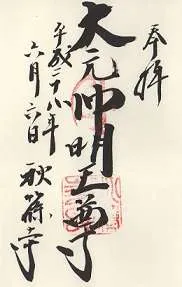 奉拝
大元帥明王尊
平成二十八年
六月六日
秋篠寺